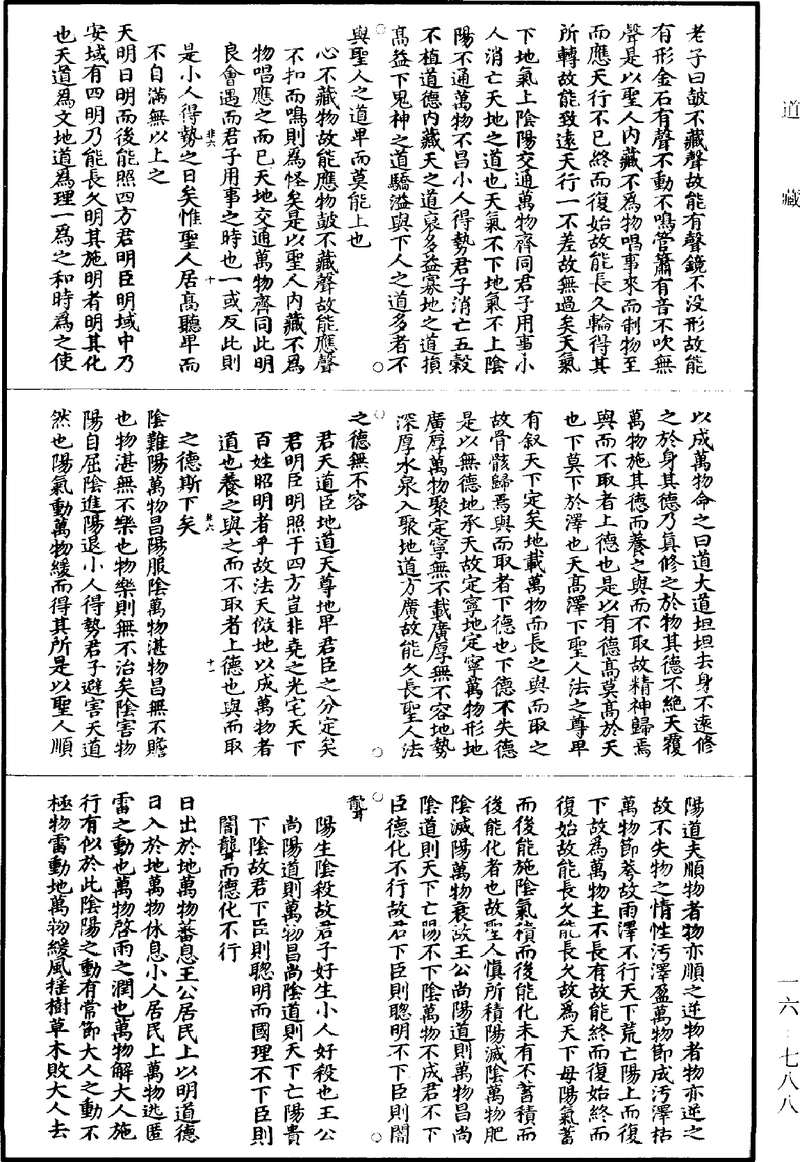 道藏
老子曰皷不藏聲故能有聲鏡不没形故能
有形金石有聲不動不鳴管簫有音不吹無
聲是以聖人內藏不爲物唱事來而制物至
而應天行不已終而復始故能長久輪得其
所轉故能致遠天行一不差故無過矣天氣
下地氣上陰陽交通萬物齊同君子用事小
人消亡天地之道也天氣不下地氣不上陰
陽不通萬物不昌小人得勢君子消亡五穀
不植道德內藏天之道裒多益寡地之道損
髙益下鬼神之道驕溢與下人之道多者不
與聖人之道卑而莫能上也
心不藏物故能應物皷不藏聲故能應聲
不扣而鳴則爲怪矣是以聖人內藏不爲
物唱應之而已天地交通萬物齊同此明
良會遇而君子用事之時也一或反此則
非六 十
是小人得勢之日矣惟聖人居髙聽卑而
不自滿無以上之
天明日明而後能照四方君明臣明域中乃
安域有四明乃能長久明其施明者明其化
也天道爲文地道爲理一爲之和時爲之使
以成萬物命之曰道大道坦坦去身不遠修
之於身其德乃真修之於物其德不絕天覆
萬物施其德而養之與而不取故精神歸焉
與而不取者上德也是以有德髙莫髙於天
也下莫下於澤也天髙澤下聖人法之尊卑
有叙天下定矣地載萬物而長之與而取之
故骨骸歸焉與而取者下德也下德不失德
是以無德地承天故定寧地定寧萬物形地
廣厚萬物聚定寧無不載廣厚無不容地勢
深厚水泉入聚地道方廣故能久長聖人法
之德無不容
君天道臣地道天尊地卑君臣之分定矣
君明臣明照于四方豈非堯之光宅天下
百姓昭明者乎故法天倣地以成萬物者
道也養之與之而不取者上德也與而取
非六 十一
之德斯下矣
陰難陽萬物昌陽服陰萬物湛物昌無不贍
也物湛無不樂也物樂則無不治矣陰害物
陽自屈陰進陽退小人得勢君子避害天道
然也陽氣動萬物緩而得其所是以聖人順
陽道夫順物者物亦順之逆物者物亦逆之
故不失物之情性汚澤盈萬物節成汚澤枯
萬物節荂故雨澤不行天下荒亡陽上而復
下故爲萬物主不長有故能終而復始終而
復始故能長久能長久故爲天下母陽氣蓄
而後能施陰氣積而後能化未有不蓄積而
後能化者也故聖人慎所積陽滅陰萬物肥
陰滅陽萬物衰故王公尚陽道則萬物昌尚
陰道則天下亡陽不下陰萬物不成君不下
臣德化不行故君下臣則聰明不下臣則闇
聾
陽生陰殺故君子好生小人好殺也王公
尚陽道則萬物昌尚陰道則天下亡陽貴
下陰故君下臣則聰明而國理不下臣則
闇聾而德化不行
日出於地萬物蕃息王公居民上以明道德
日入於地萬物休息小人居民上萬物逃匿
雷之動也萬物啓雨之潤也萬物解大人施
行有似於此陰陽之動有常節大人之動不
極物雷動地萬物緩風揺樹草木敗大人去
一六-七八八